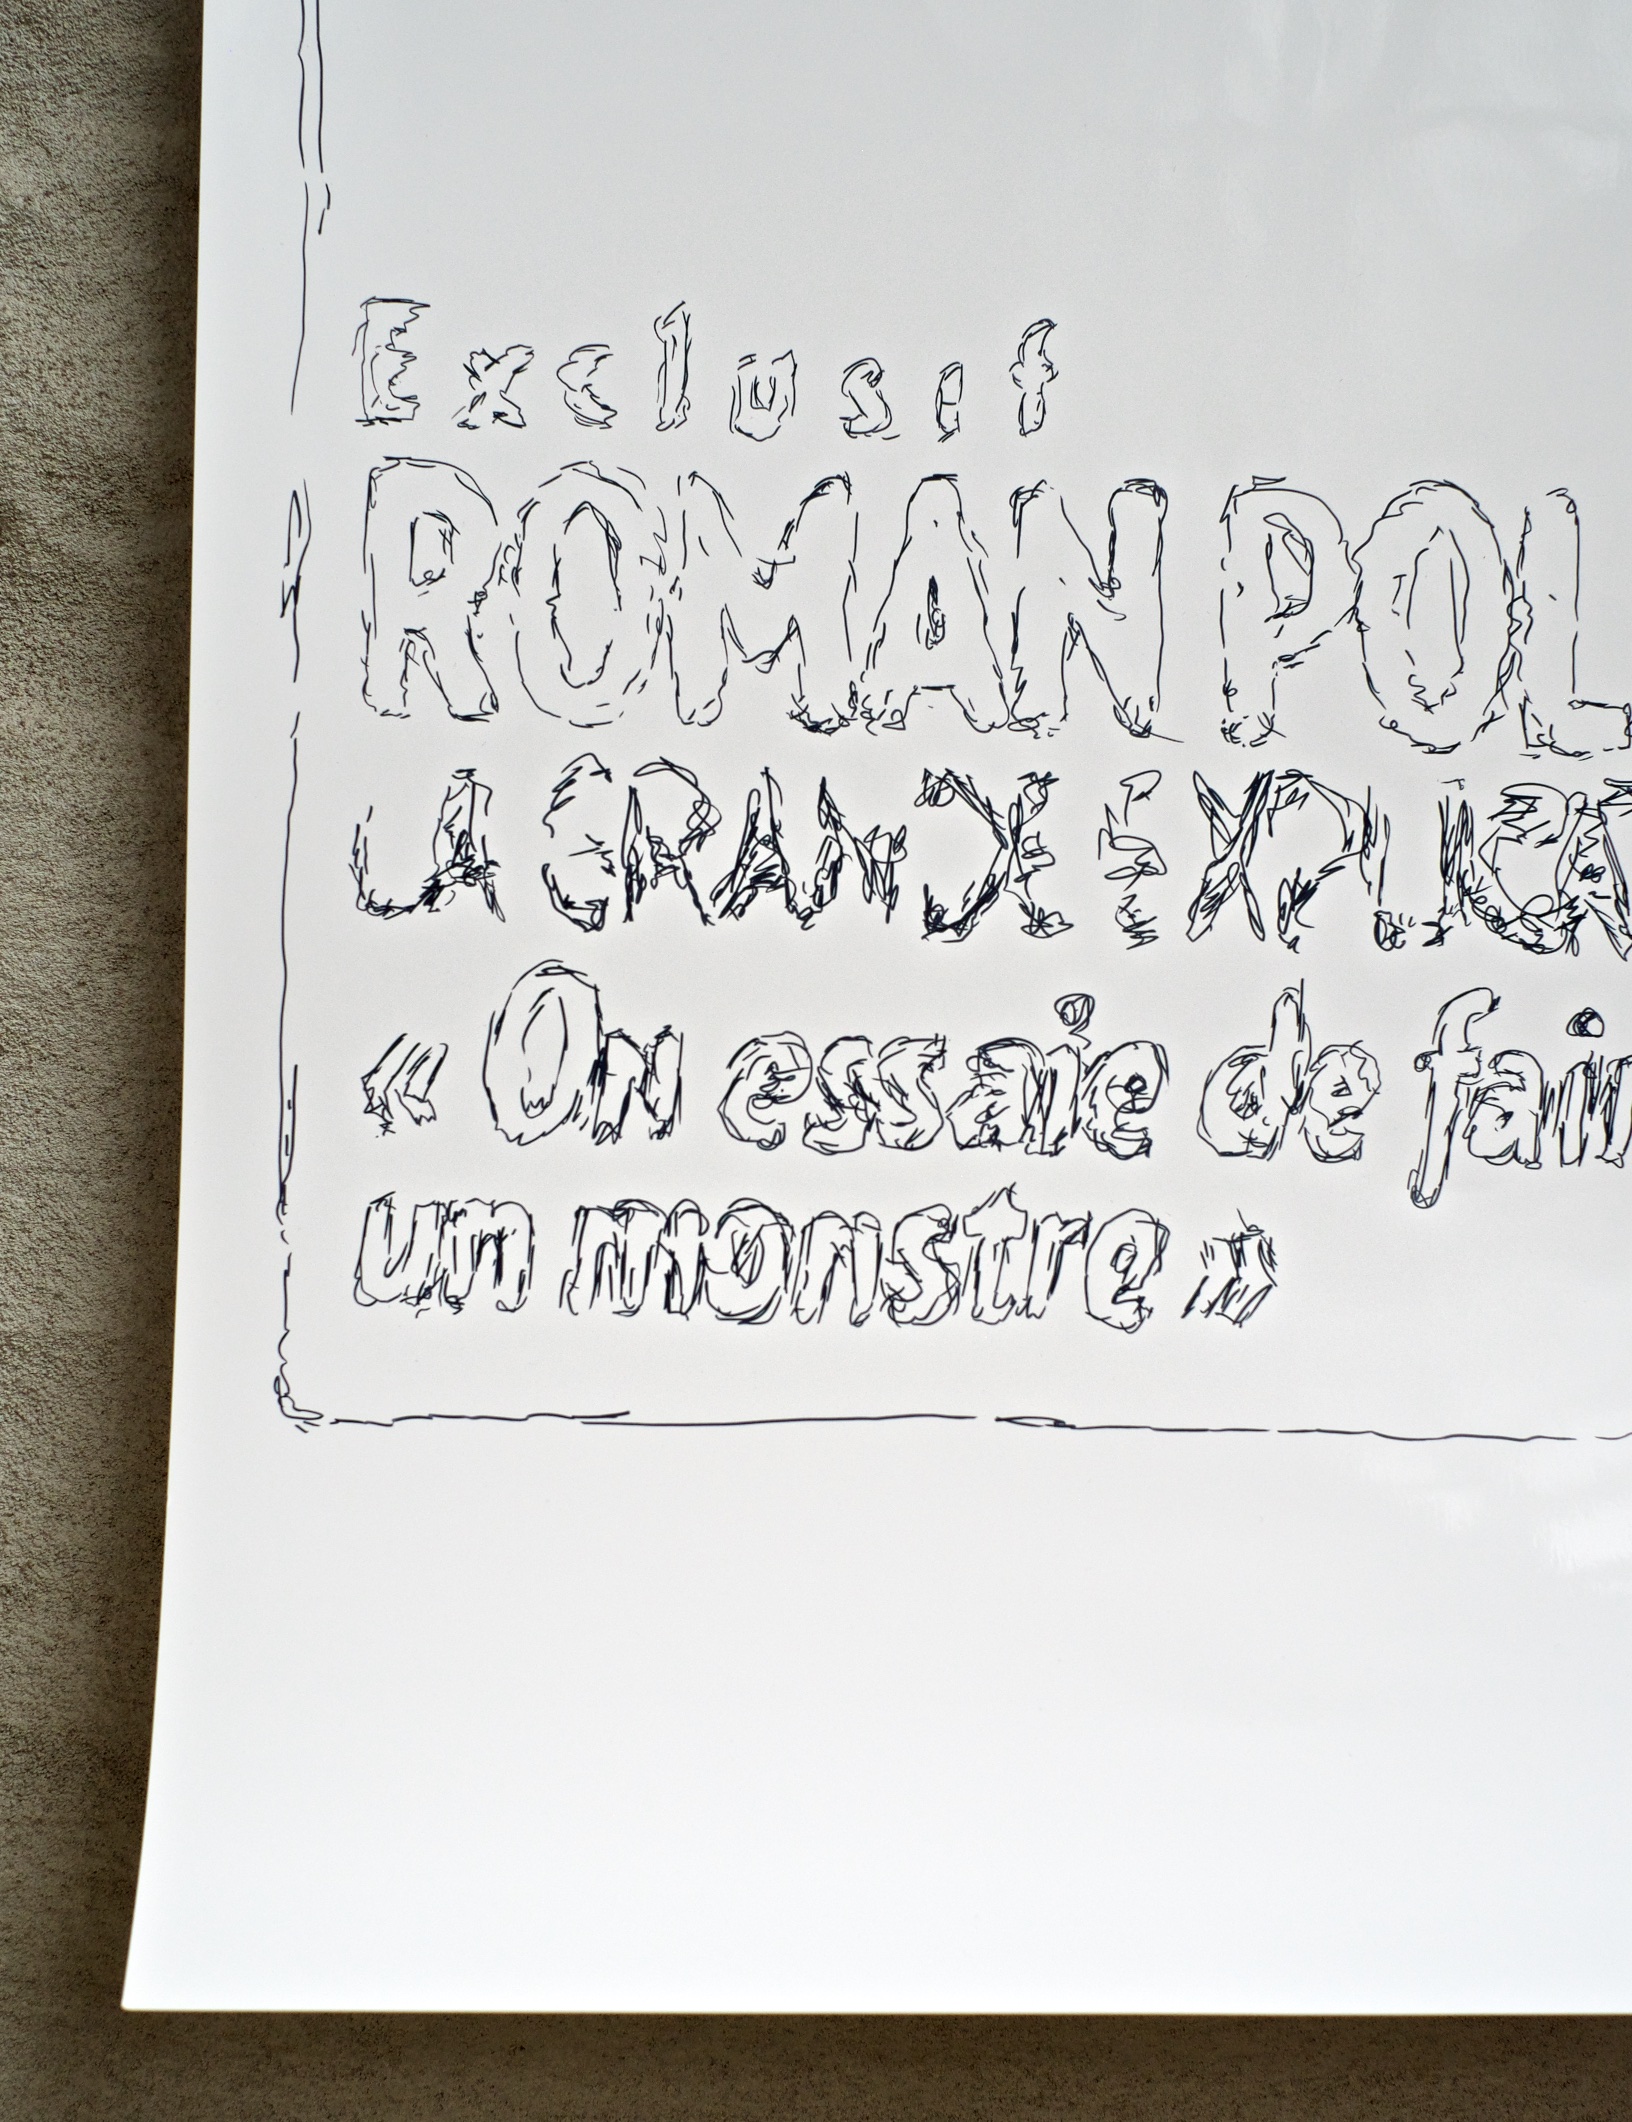 Exclusif
ROMAN POL
LA GRANDE EXPLICA
« On essaie de fair
un monstre »